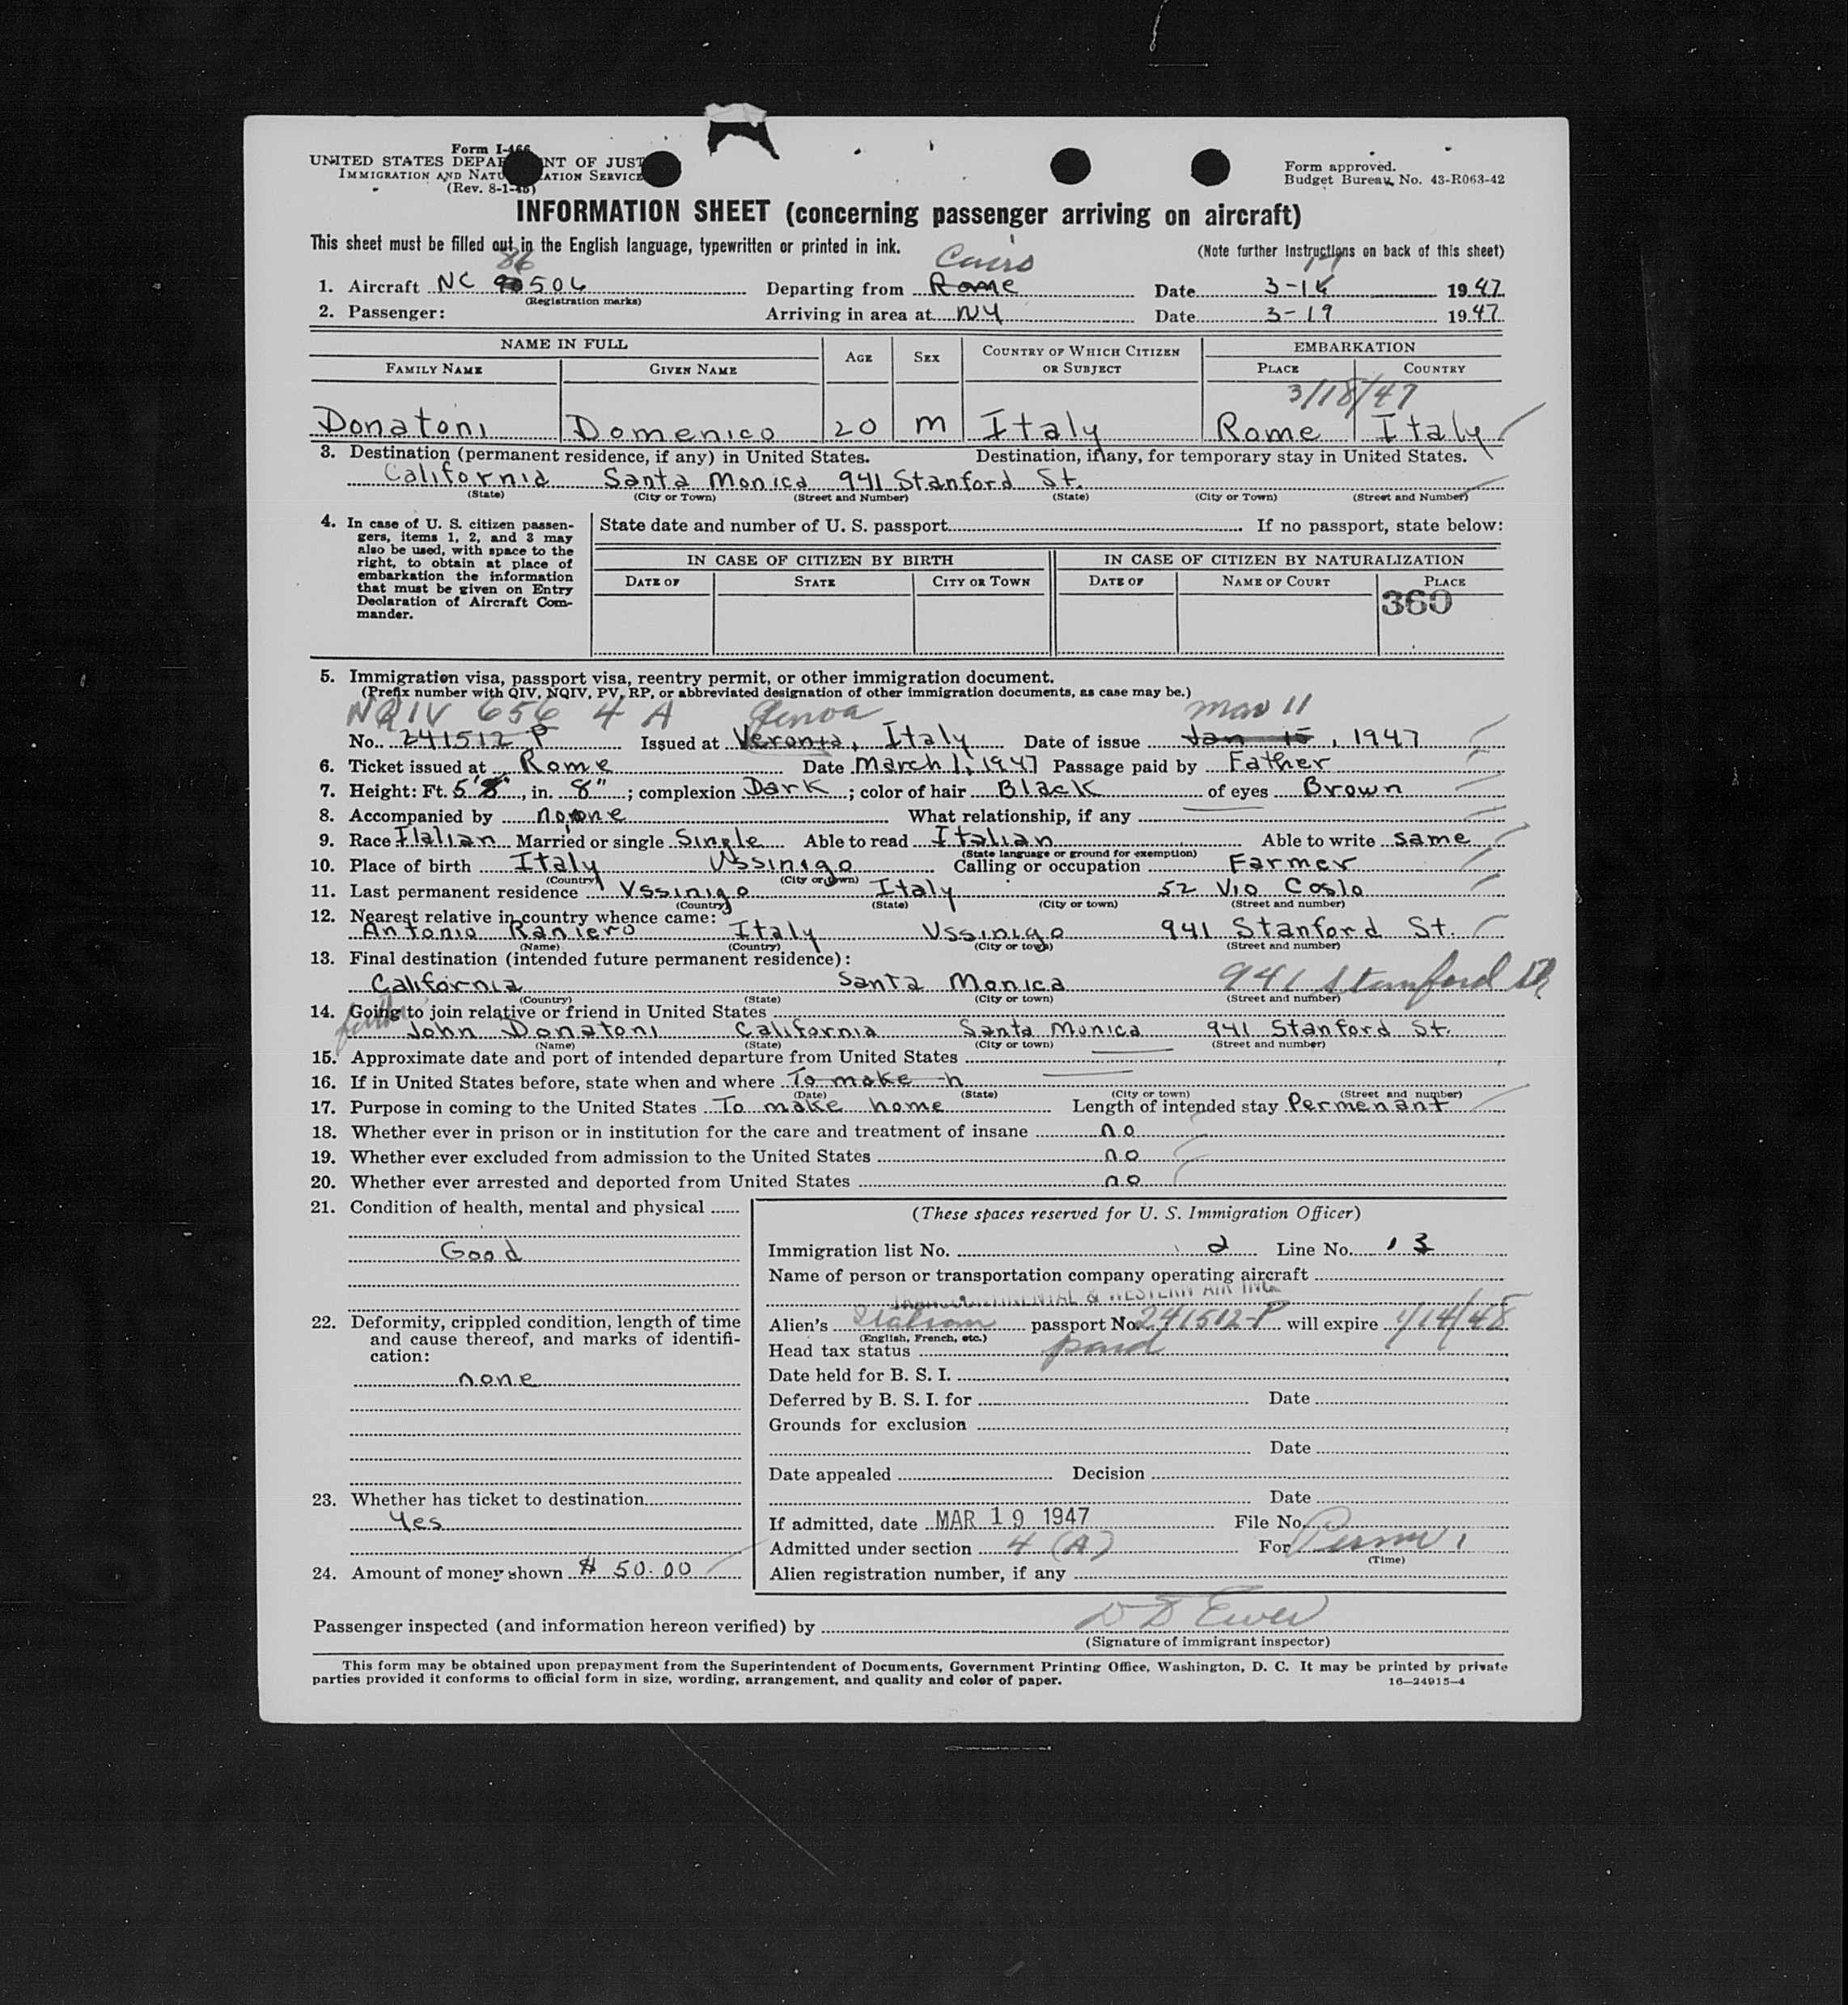 Form I-466
UNITED STATES DEPAR NT OF JUST
IMMIGRATION AND NATU ATION SERVICE
(Rev. 8-1-45)
Form approved.
Budget Bureau No. 43-R063-42
INFORMATION SHEET (concerning passenger arriving on aircraft)
This sheet must be filled out in the English language, typewritten or printed in ink.
(Note further instructions on back of this sheet)
86 Cairo 17
1. Aircraft NC 90506 Departing from Rome Date 3-16 1947
(Registration marks)
2. Passenger: Arriving in area at NY Date 3-19 1947
NAME IN FULL AGE SEX COUNTRY OF WHICH CITIZEN OR SUBJECT EMBARKATION
FAMILY NAME GIVEN NAME PLACE COUNTRY
3/18/47
Donatoni Domenico 20 M Italy Rome Italy
3. Destination (permanent residence, if any) in United States. Destination, if any, for temporary stay in United States.
California Santa Monica 941 Stanford St.
(State) (City or Town) (Street and Number) (State) (City or Town) (Street and Number)
4. In case of U. S. citizen passengers, items 1, 2, and 3 may also be used, with space to the right, to obtain at place of embarkation the information that must be given on Entry Declaration of Aircraft Commander.
State date and number of U. S. passport If no passport, state below:
IN CASE OF CITIZEN BY BIRTH IN CASE OF CITIZEN BY NATURALIZATION
DATE OF STATE CITY OR TOWN DATE OF NAME OF COURT PLACE
360
5. Immigration visa, passport visa, reentry permit, or other immigration document.
(Prefix number with QIV, NQIV, PV, RP, or abbreviated designation of other immigration documents, as case may be.)
NQIV 656 4 A Genoa Mar 11
No. 241512 P Issued at Veronia, Italy Date of issue Jan 15, 1947
6. Ticket issued at Rome Date March 1, 1947 Passage paid by Father
7. Height: Ft. 5'8", in. 8" ; complexion Dark ; color of hair Black of eyes Brown
8. Accompanied by noone What relationship, if any
9. Race Italian Married or single Single Able to read Italian Able to write same
(State language or ground for exemption)
10. Place of birth Italy Ussinigo Calling or occupation Farmer
(Country) (City or town)
11. Last permanent residence Vssinigo Italy 52 Vio Coslo
(Country) (State) (City or town) (Street and number)
12. Nearest relative in country whence came:
Antonio Raniero Italy Vssinigo 941 Stanford St.
(Name) (Country) (City or town) (Street and number)
13. Final destination (intended future permanent residence):
California Santa Monica 941 Stanford St
(Country) (State) (City or town) (Street and number)
14. Going to join relative or friend in United States
father John Donatoni California Santa Monica 941 Stanford St.
(Name) (State) (City or town) (Street and number)
15. Approximate date and port of intended departure from United States
16. If in United States before, state when and where To make h
(Date) (State) (City or town) (Street and number)
17. Purpose in coming to the United States To make home Length of intended stay Permenant
18. Whether ever in prison or in institution for the care and treatment of insane no
19. Whether ever excluded from admission to the United States no
20. Whether ever arrested and deported from United States no
21. Condition of health, mental and physical
Good
22. Deformity, crippled condition, length of time and cause thereof, and marks of identification:
none
23. Whether has ticket to destination
Yes
24. Amount of money shown $ 50.00
(These spaces reserved for U. S. Immigration Officer)
Immigration list No. 2 Line No. 13
Name of person or transportation company operating aircraft
TRANSCONTINENTAL & WESTERN AIR INC.
Alien's Italian passport No. 241512-P will expire 1/14/48
(English, French, etc.)
Head tax status paid
Date held for B. S. I.
Deferred by B. S. I. for Date
Grounds for exclusion
Date
Date appealed Decision
Date
If admitted, date MAR 19 1947 File No.
Admitted under section 4 (A) For Perm
(Time)
Alien registration number, if any
Passenger inspected (and information hereon verified) by D D Ewer
(Signature of immigrant inspector)
This form may be obtained upon prepayment from the Superintendent of Documents, Government Printing Office, Washington, D. C. It may be printed by private
parties provided it conforms to official form in size, wording, arrangement, and quality and color of paper.
16—24915-4